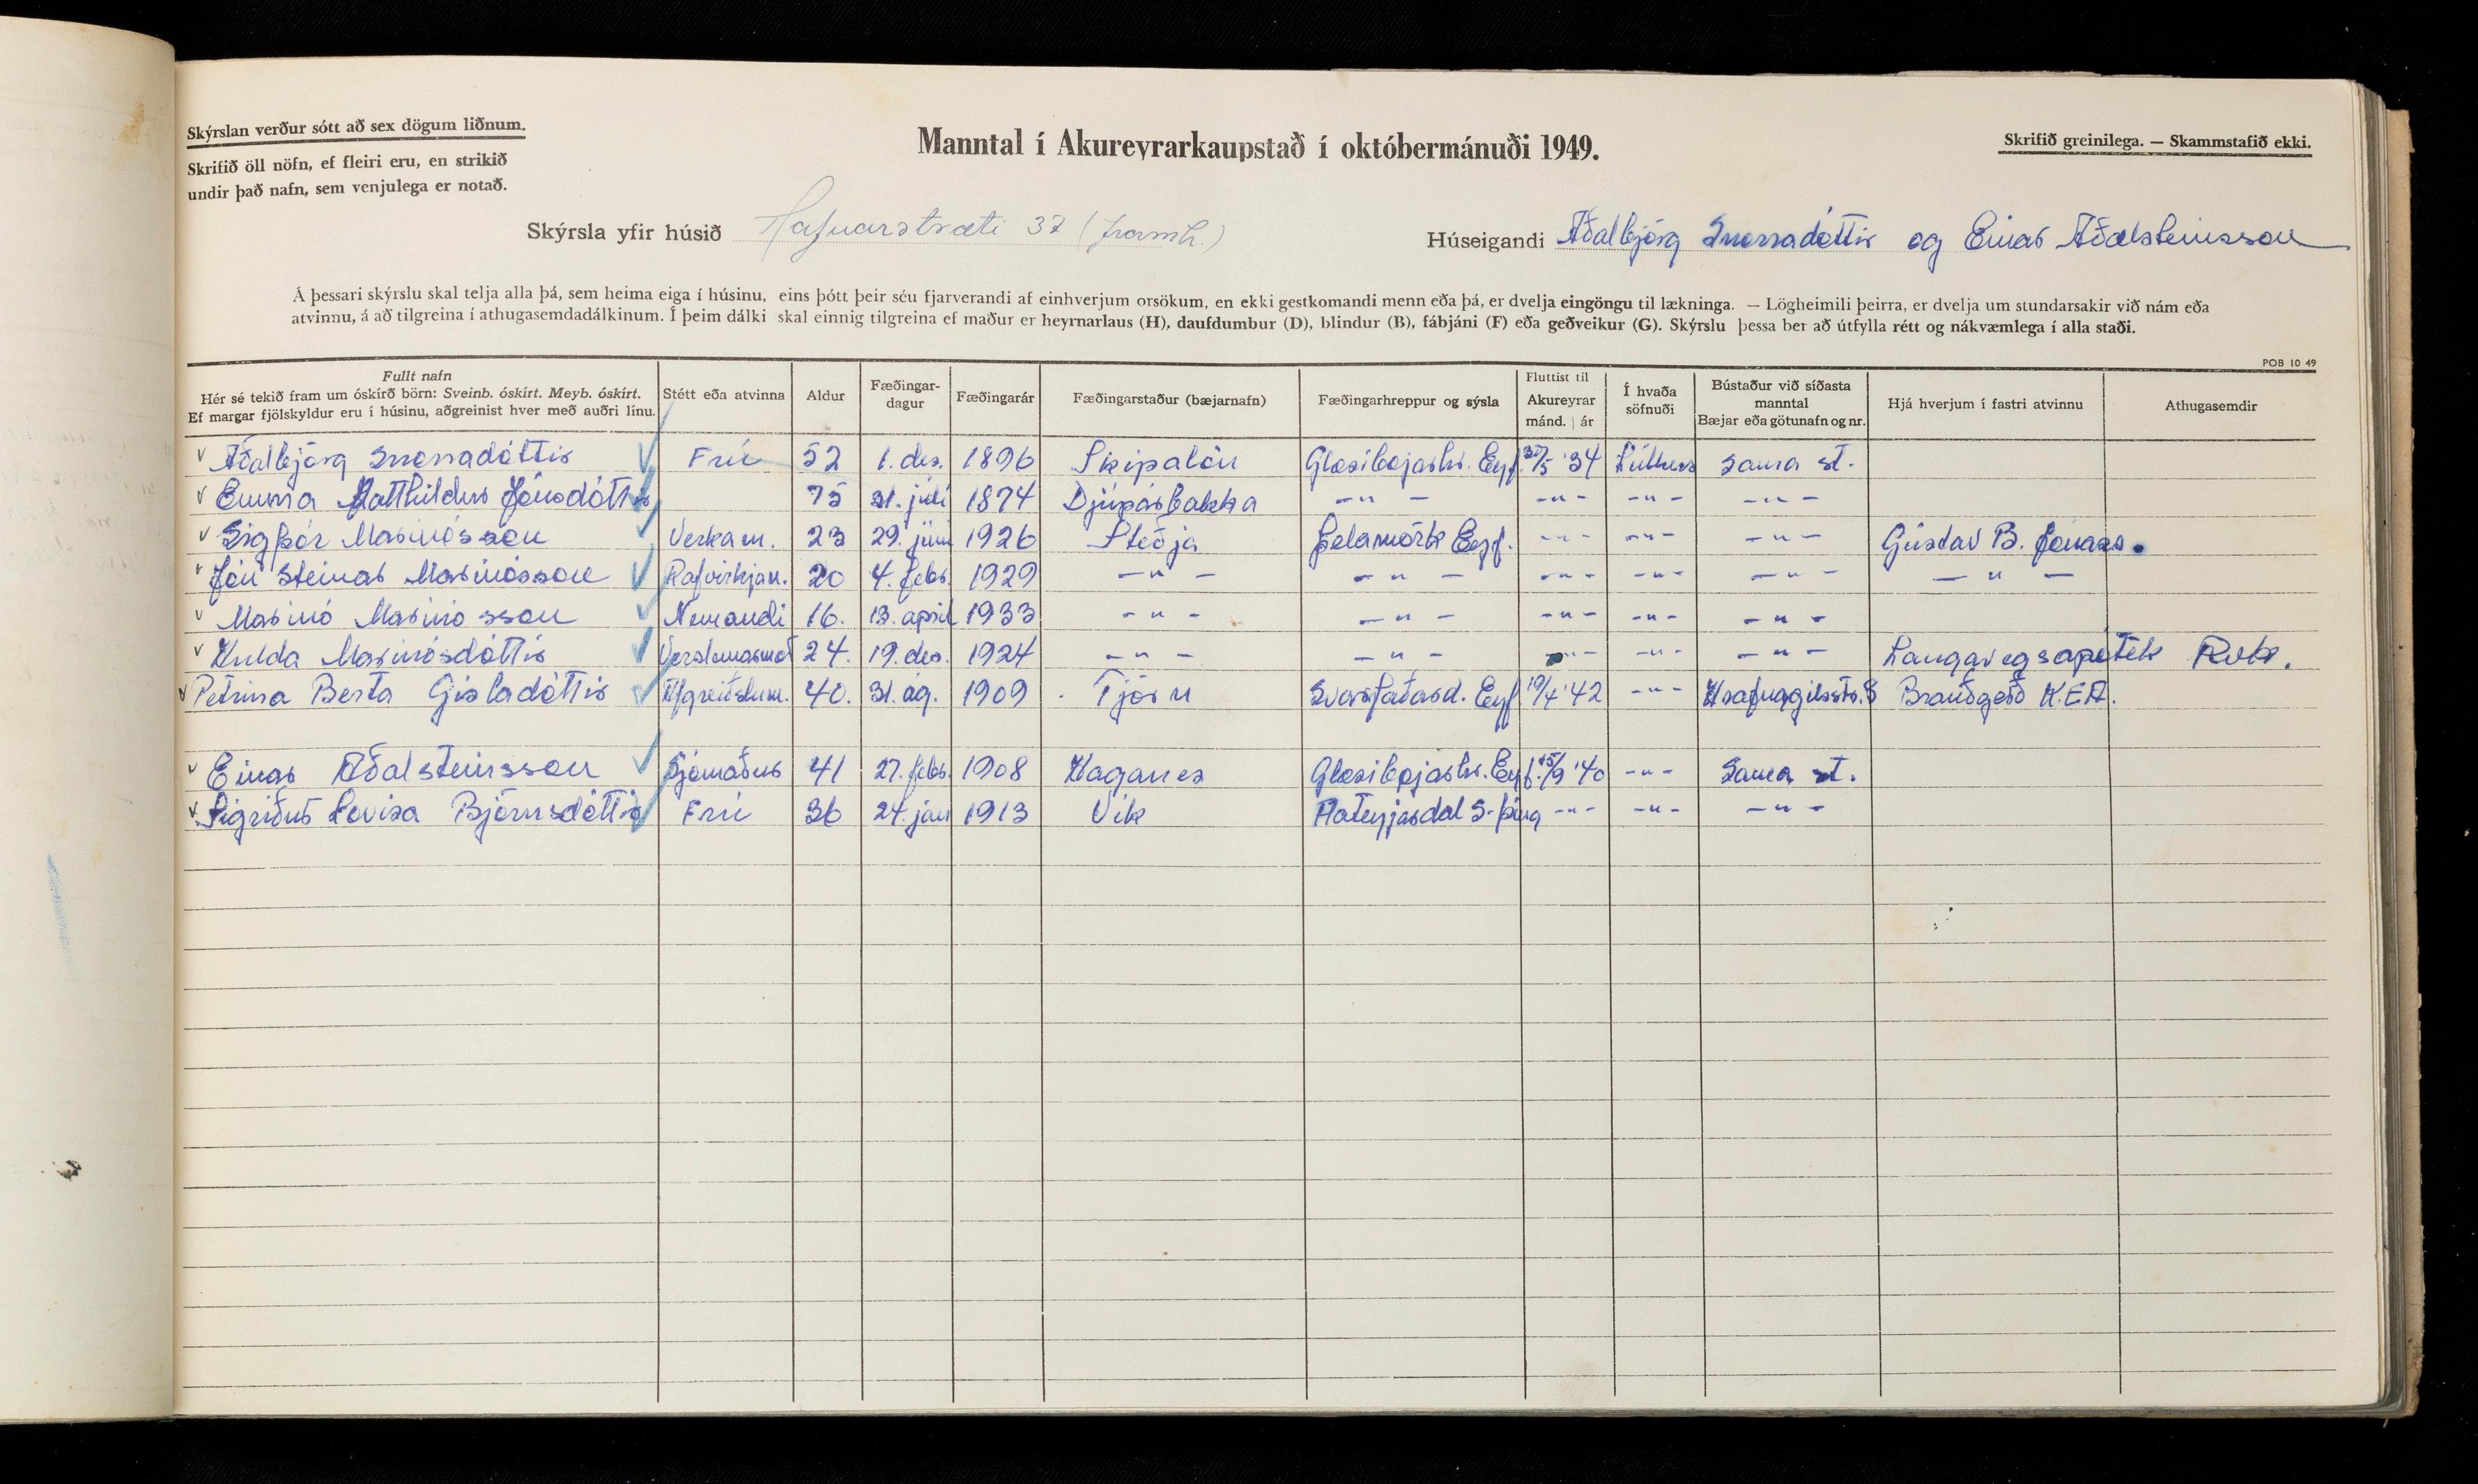 Skýrslan verður sótt að sex dögum liðnum.
Skrifið öll nöfn, ef fleiri eru, en strikið
undir það nafn, sem venjulega er notað.
Manntal í Akureyrarkaupstað í októbermánuði 1949.
Skrifið greinilega. — Skammstafið ekki.
Skýrsla yfir húsið Hafnarstræti 37 (framh.)
Húseigandi Aðalbjörg Snorradóttir og Einar Aðalsteinsson
Á þessari skýrslu skal telja alla þá, sem heima eiga í húsinu, eins þótt þeir séu fjarverandi af einhverjum orsökum, en ekki gestkomandi menn eða þá, er dvelja eingöngu til lækninga. — Lögheimili þeirra, er dvelja um stundarsakir við nám eða
atvinnu, á að tilgreina í athugasemdadálkinum. Í þeim dálki skal einnig tilgreina ef maður er heyrnarlaus (H), daufdumbur (D), blindur (B), fábjáni (F) eða geðveikur (G). Skýrslu þessa ber að útfylla rétt og nákvæmlega í alla staði.
POB 10 49
Fullt nafn
Hér sé tekið fram um óskírð börn: Sveinb. óskírt. Meyb. óskírt.
Ef margar fjölskyldur eru í húsinu, aðgreinist hver með auðri línu.
Stétt eða atvinna
Aldur
Fæðingar-
dagur
Fæðingarár
Fæðingarstaður (bæjarnafn)
Fæðingarhreppur og sýsla
Fluttist til
Akureyrar
mánd. | ár
Í hvaða
söfnuði
Bústaður við síðasta
manntal
Bæjar eða götunafn og nr.
Hjá hverjum í fastri atvinnu
Athugasemdir
Aðalbjörg Snorradóttir Frú 52 1. des. 1896 Skipalón Glæsibæjarhr. Eyf. '34 Lúthers sama st.
Emma Matthildur Jónsdóttir 75 31. júlí 1874 Djúpárbakka –"– –"– –"– –"–
Sigþór Marinósson Verkam. 23 29. júní 1926 Steðja Þelamörk Eyf. –"– –"– –"– Gústav B. Jónass.
Jón Steinar Marinósson Rafvirkjan. 20 4. febr. 1929 –"– –"– –"– –"– –"– –"–
Marinó Marinósson Nemandi 16. 13. apríl 1933 –"– –"– –"– –"– –"–
Hulda Marinósdóttir 24. 19. des. 1924 –"– –"– –"– –"– –"– Laugavegsapótek Rvk.
Petrína Berta Gísladóttir Afgreiðslum. 40. 31. ág. 1909 Tjörn Svarfaðard. Eyf 19/4 '42 –"– Hrafnagilsstr. 8 Brauðgerð K.E.A.
Einar Aðalsteinsson Sjómaður 41 27. febr. 1908 Haganes Glæsibæjarhr. Eyf. 15/9 '40 –"– Sama st.
Sigríður Lovísa Björnsdóttir Frú 36 24. jan 1913 Vík Flateyjardal S-þing –"– –"– –"–